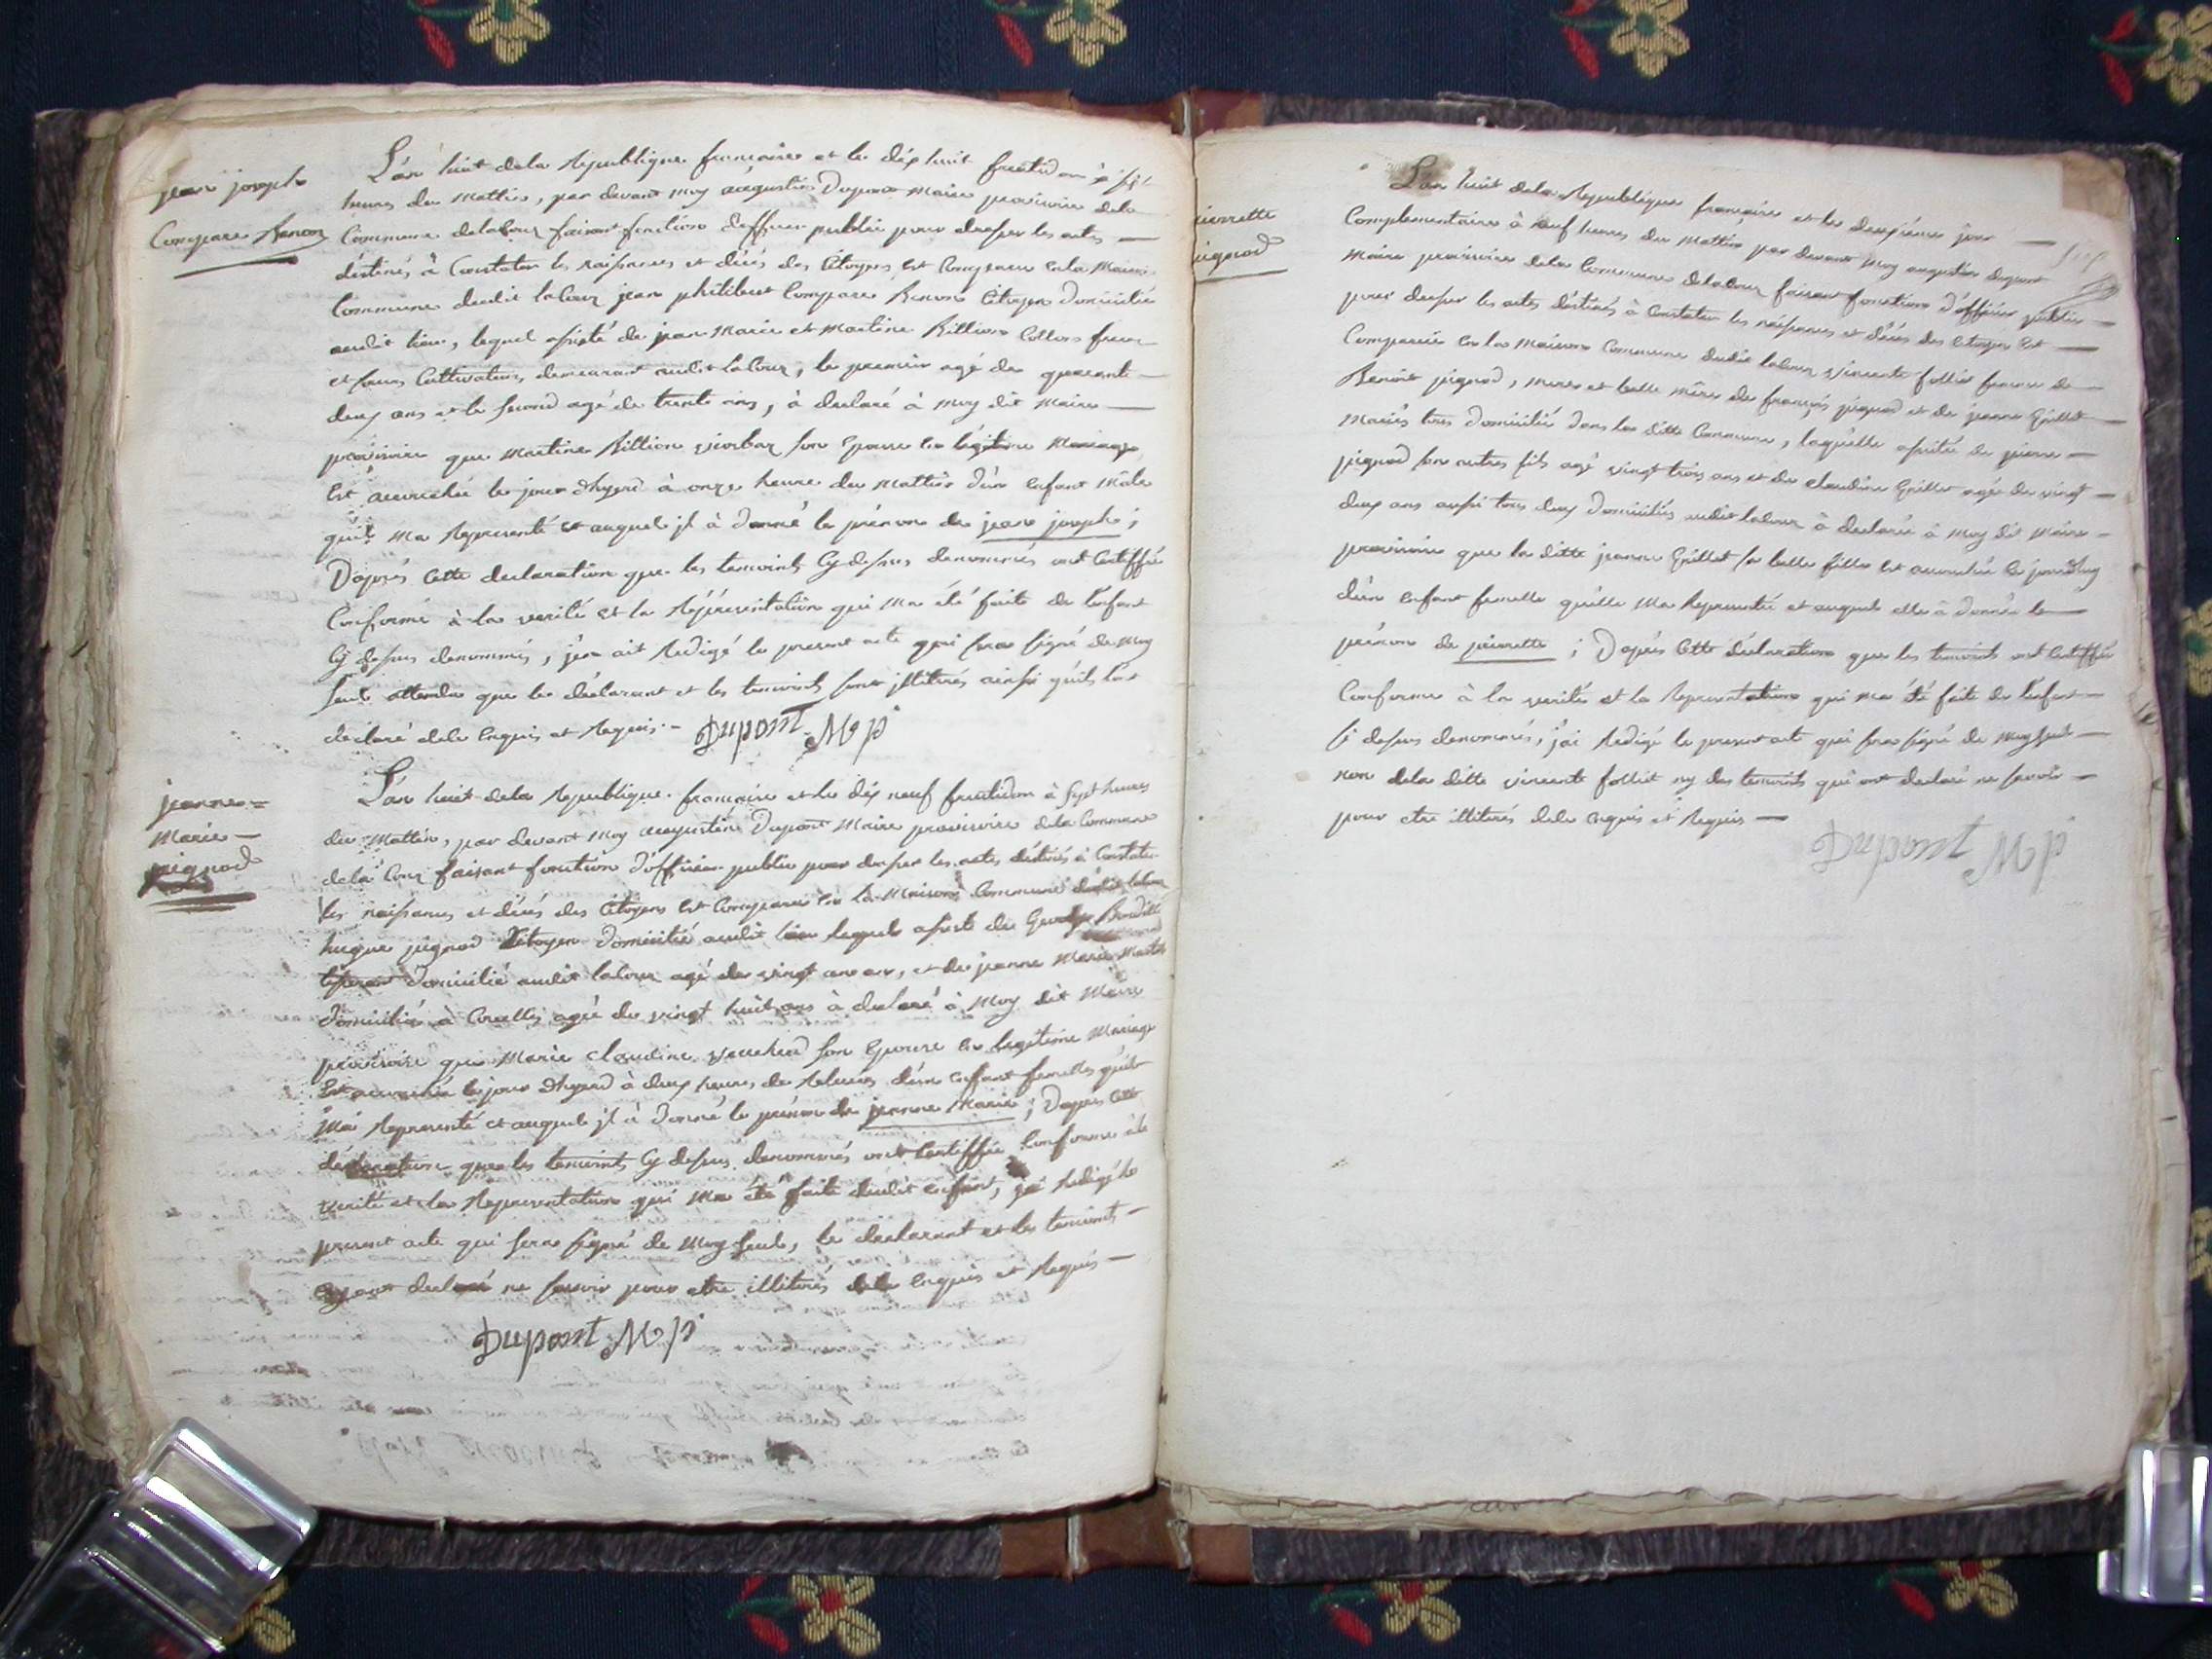 jean joseph
Compare Renon
L'an huit dela Republique francaise et le dix huit fructidor à
heures du Mattin, par devant moy augustin Dupont Maire provisoire dela
Commune delaCour faisant fonction d'officier public pour dresser les actes
déstinés à Constater les naissances et décés des Citoyens est Comparu en la Maison
Commune dudit laCour jean philibert Compare Renon Citoyen domicilié
audit lieu, lequel assisté de jean Marie et Martine Billion frere
et soeur Cultivateurs demeurant audit laCour, le premier agé de quarante
deux ans et le second agé de trente ans, à declaré à moy dit Maire
provisoire que Martine Billion son Epouse en légitime Mariage
Est accouchée le jour dhyerd à onze heure du Mattin d'un Enfant Mâle
qu'il ma Representé et auquel jl à donné le prénom de jean joseph ;
D'aprés Cette declaration que les temoints Cy dessus denommés ont Certiffié
Conforme à la verité et la Répresentation qui ma été faite de l'enfant
Cy dessus denommés, j'en ait Redigé le present acte qui sera signé de moy
seul attendu que le déclarant et les temoints sont jllitirés ainsi qu'ils l'ont
declaré dele Enquis et Requis. - Dupont M p
jeanne =
Marie -
pignod
L'an huit dela Republique francaise et le dix neuf fructidor à sept heures
du Mattin, par devant moy augustin Dupont Maire provisoire dela Commune
dela Cour faisant fonction d'officier public pour dresser les actes déstinés à Constater
les naissances et décés des Citoyens est Comparu en la Maison Commune dudit laCour
hugue pignod Citoyen domicilié audit lieu lequel assisté de
domicilié audit laCour agé de vingt un an, et de jeanne Marie
domiciliée à agée de vingt huit ans à declaré à moy dit Maire
provisoire que Marie claudine son Epouse en legitime Mariage
Est accouchée le jour dhyerd à deux heures de d'un enfant femelle qu'il
ma Representé et auquel jl à donné le prénom de jeanne Marie ; D'aprés Cette
déclaration que les temoints Cy dessus denommés ont Certiffié Conforme à la
verité et la Representation qui ma été faite dudit enfant, j'ai Redigé le
present acte qui sera signé de moy seul, le declarant et les temoints
ayant declaré ne savoir pour etre illitirés dele enquis et Requis -
Dupont M p
ierrette
ignod
L'an huit dela Republique française et le deuxiéme jour
Complementaire à neuf heures du Mattin par devant moy augustin dupont
Maire provisoire dela Commune delaCour faisant fonction d'officier public
pour dresser les actes déstinés à Constater les naissances et décés des Citoyens Est
Comparuë en la Maison Commune dudit laCour vincente follict femme de
Benoit pignod, mere et belle mère de françois pignod et de jeanne Grillet
Mariés tous domiciliés dans la ditte Commune, laquelle assistée de pierre
pignod son autre fils agé vingt trois ans et de claudine Grillet agée de vingt
deux ans aussi tous deux domiciliés audit laCour à declarée à moy dit Maire
provisoire que la ditte jeanne Grillet sa belle fille est accouchée le jour dhuy
d'un enfant femelle quelle ma Representée et auquel elle à donnée le
prénom de pierrette ; D'aprés Cette déclaration que les temoints ont Certiffié
Conforme à la verité et la Representation qui ma été faite de l'enfant
si dessus denommés, j'ai Redigé le present acte qui sera signé de moy seul
non dela ditte vincente follict ny des temoints qui ont declaré ne savoir
pour etre illitirés dele enquis et Requis